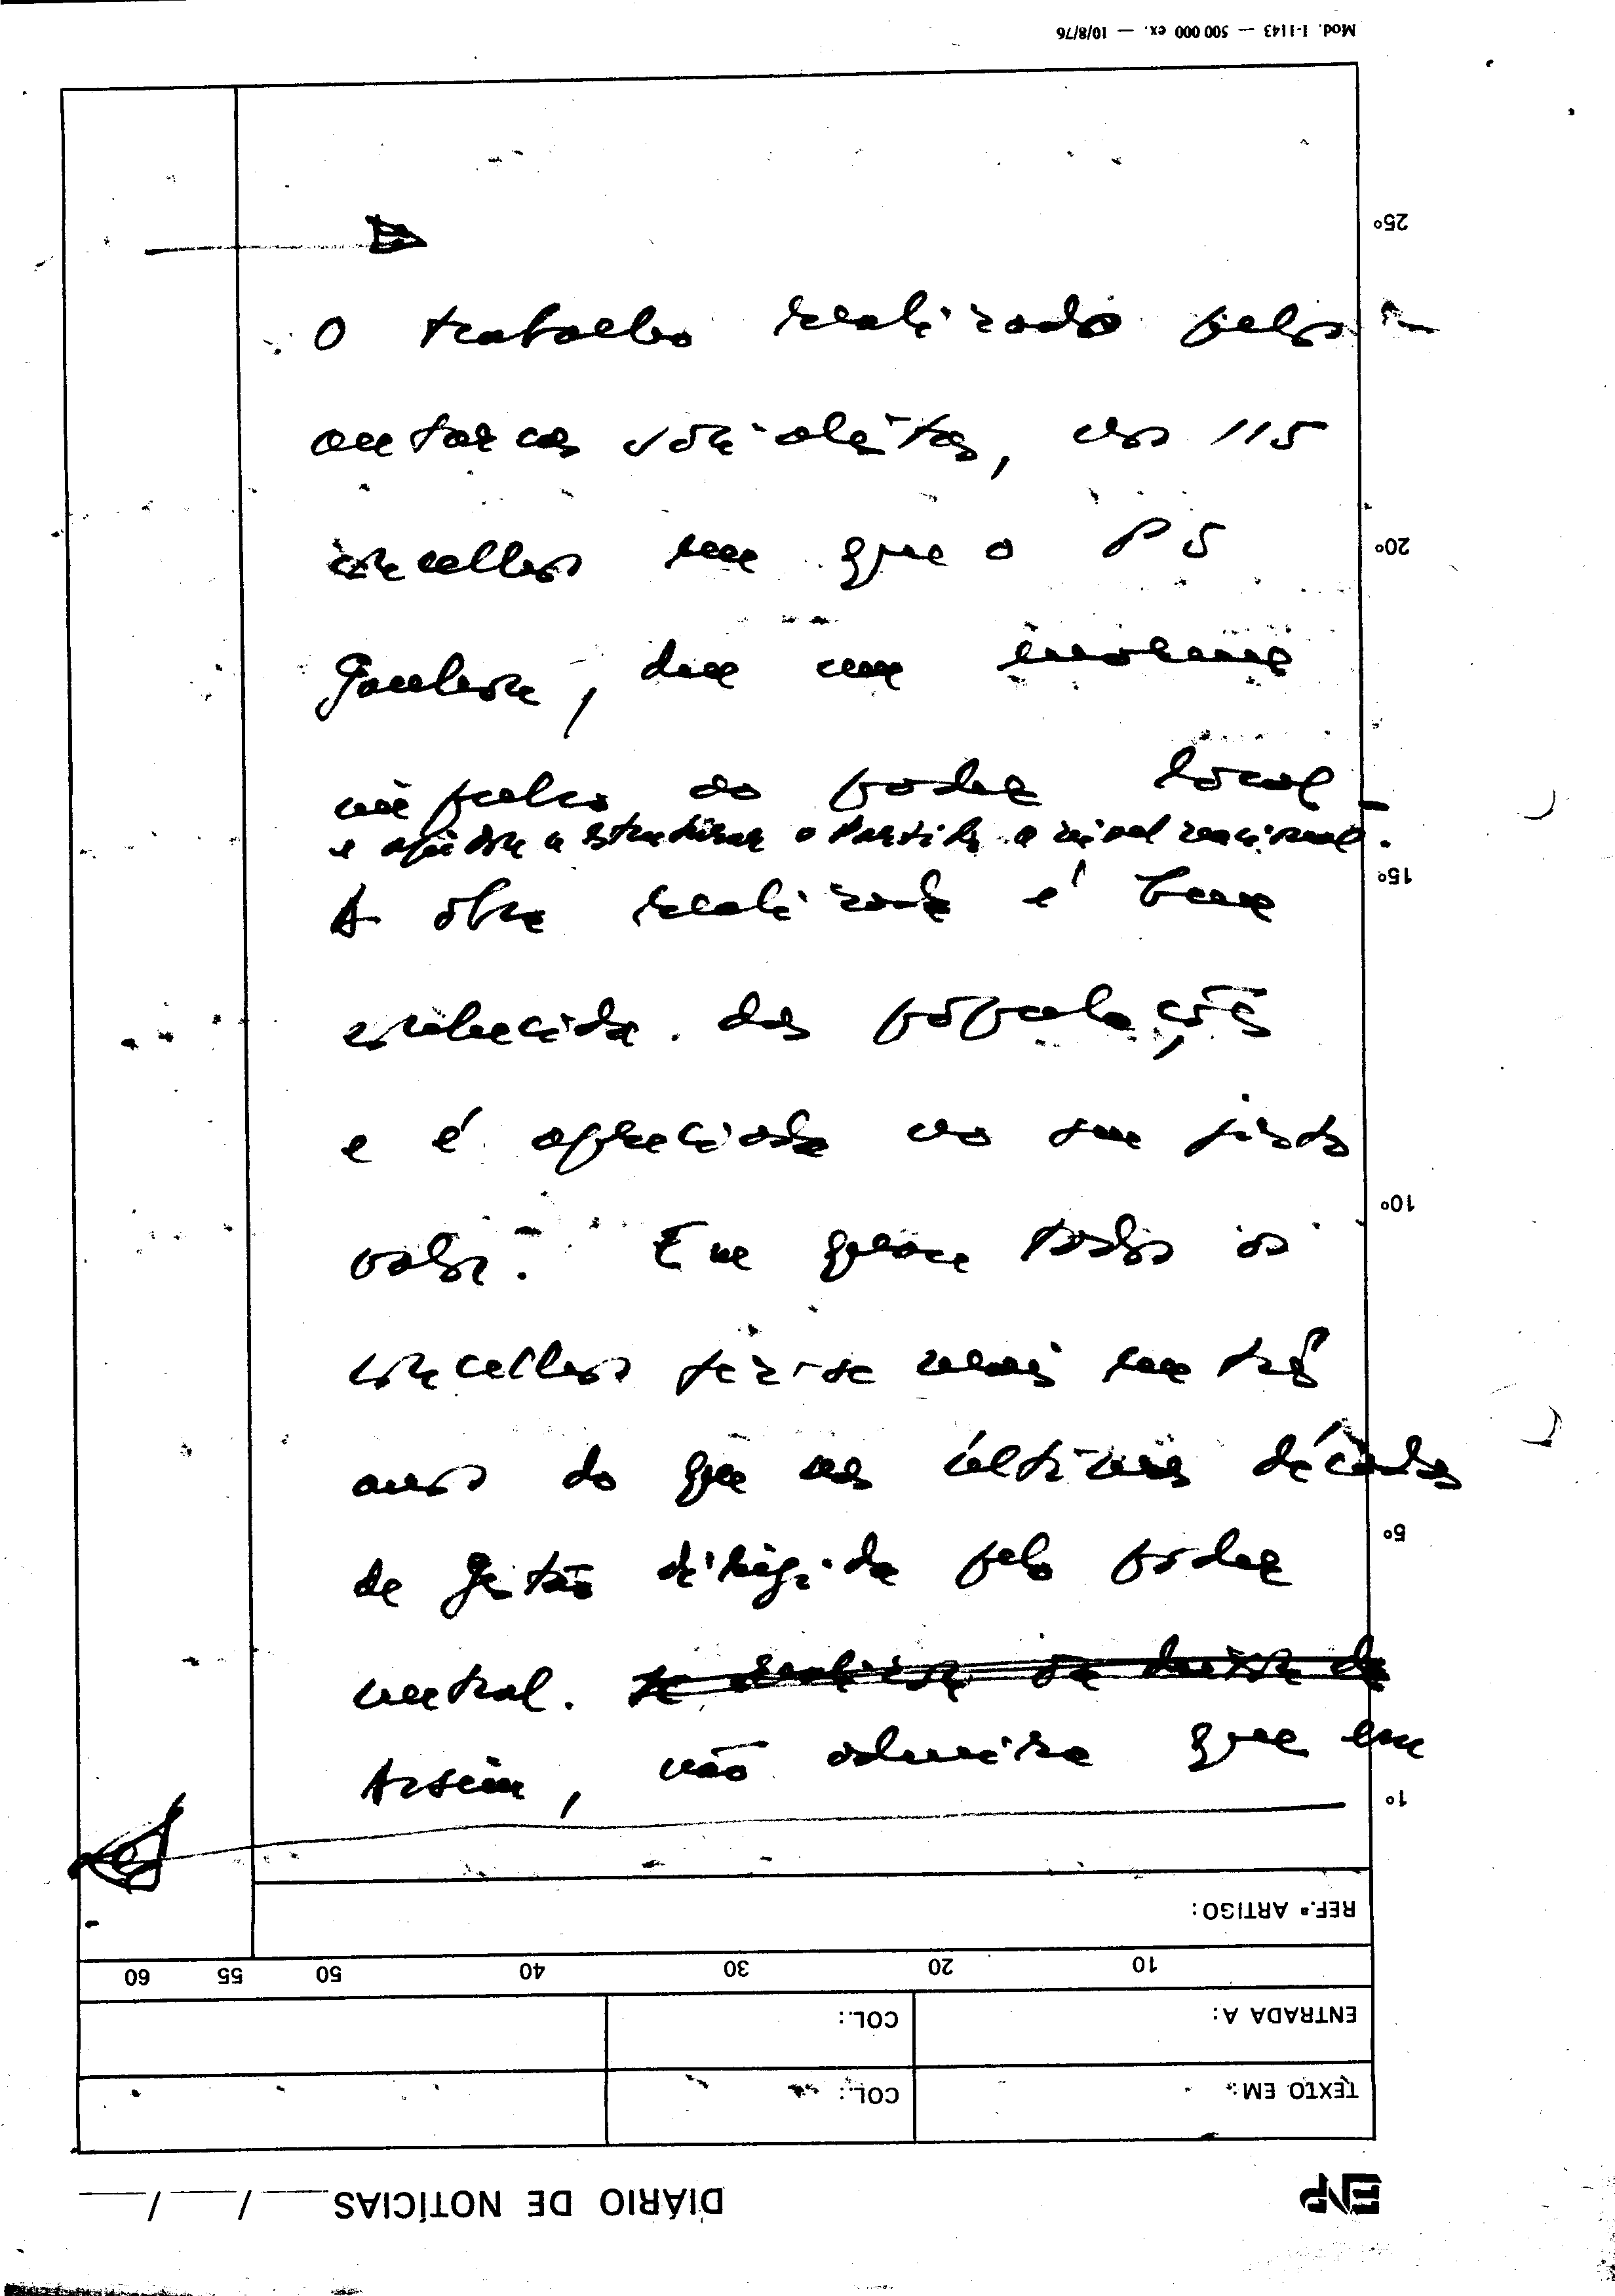 Mod. I-1143 — 500 000 ex. — 10/8/76
25º
O trabalho realizado pelos
autarcas socialistas, nos 115
20º
concelhos em que o PS
ganhou, deu um enorme
impulso ao poder local
e ajudou a estruturar o Partido a nível nacional.
15º
A obra realizada é bem
conhecida das populações
e é apreciada no seu justo
10º
valor. Em quase todos os
concelhos fez-se mais em três
anos do que nas últimas décadas
5º
de gestão dirigida pelo poder
central.
Assim, não admira que em
1º
REF.ª ARTIGO:
10 20 30 40 50 55 60
ENTRADA A: COL.:
TEXTO EM: COL.:
ENP DIÁRIO DE NOTÍCIAS ___/___/___